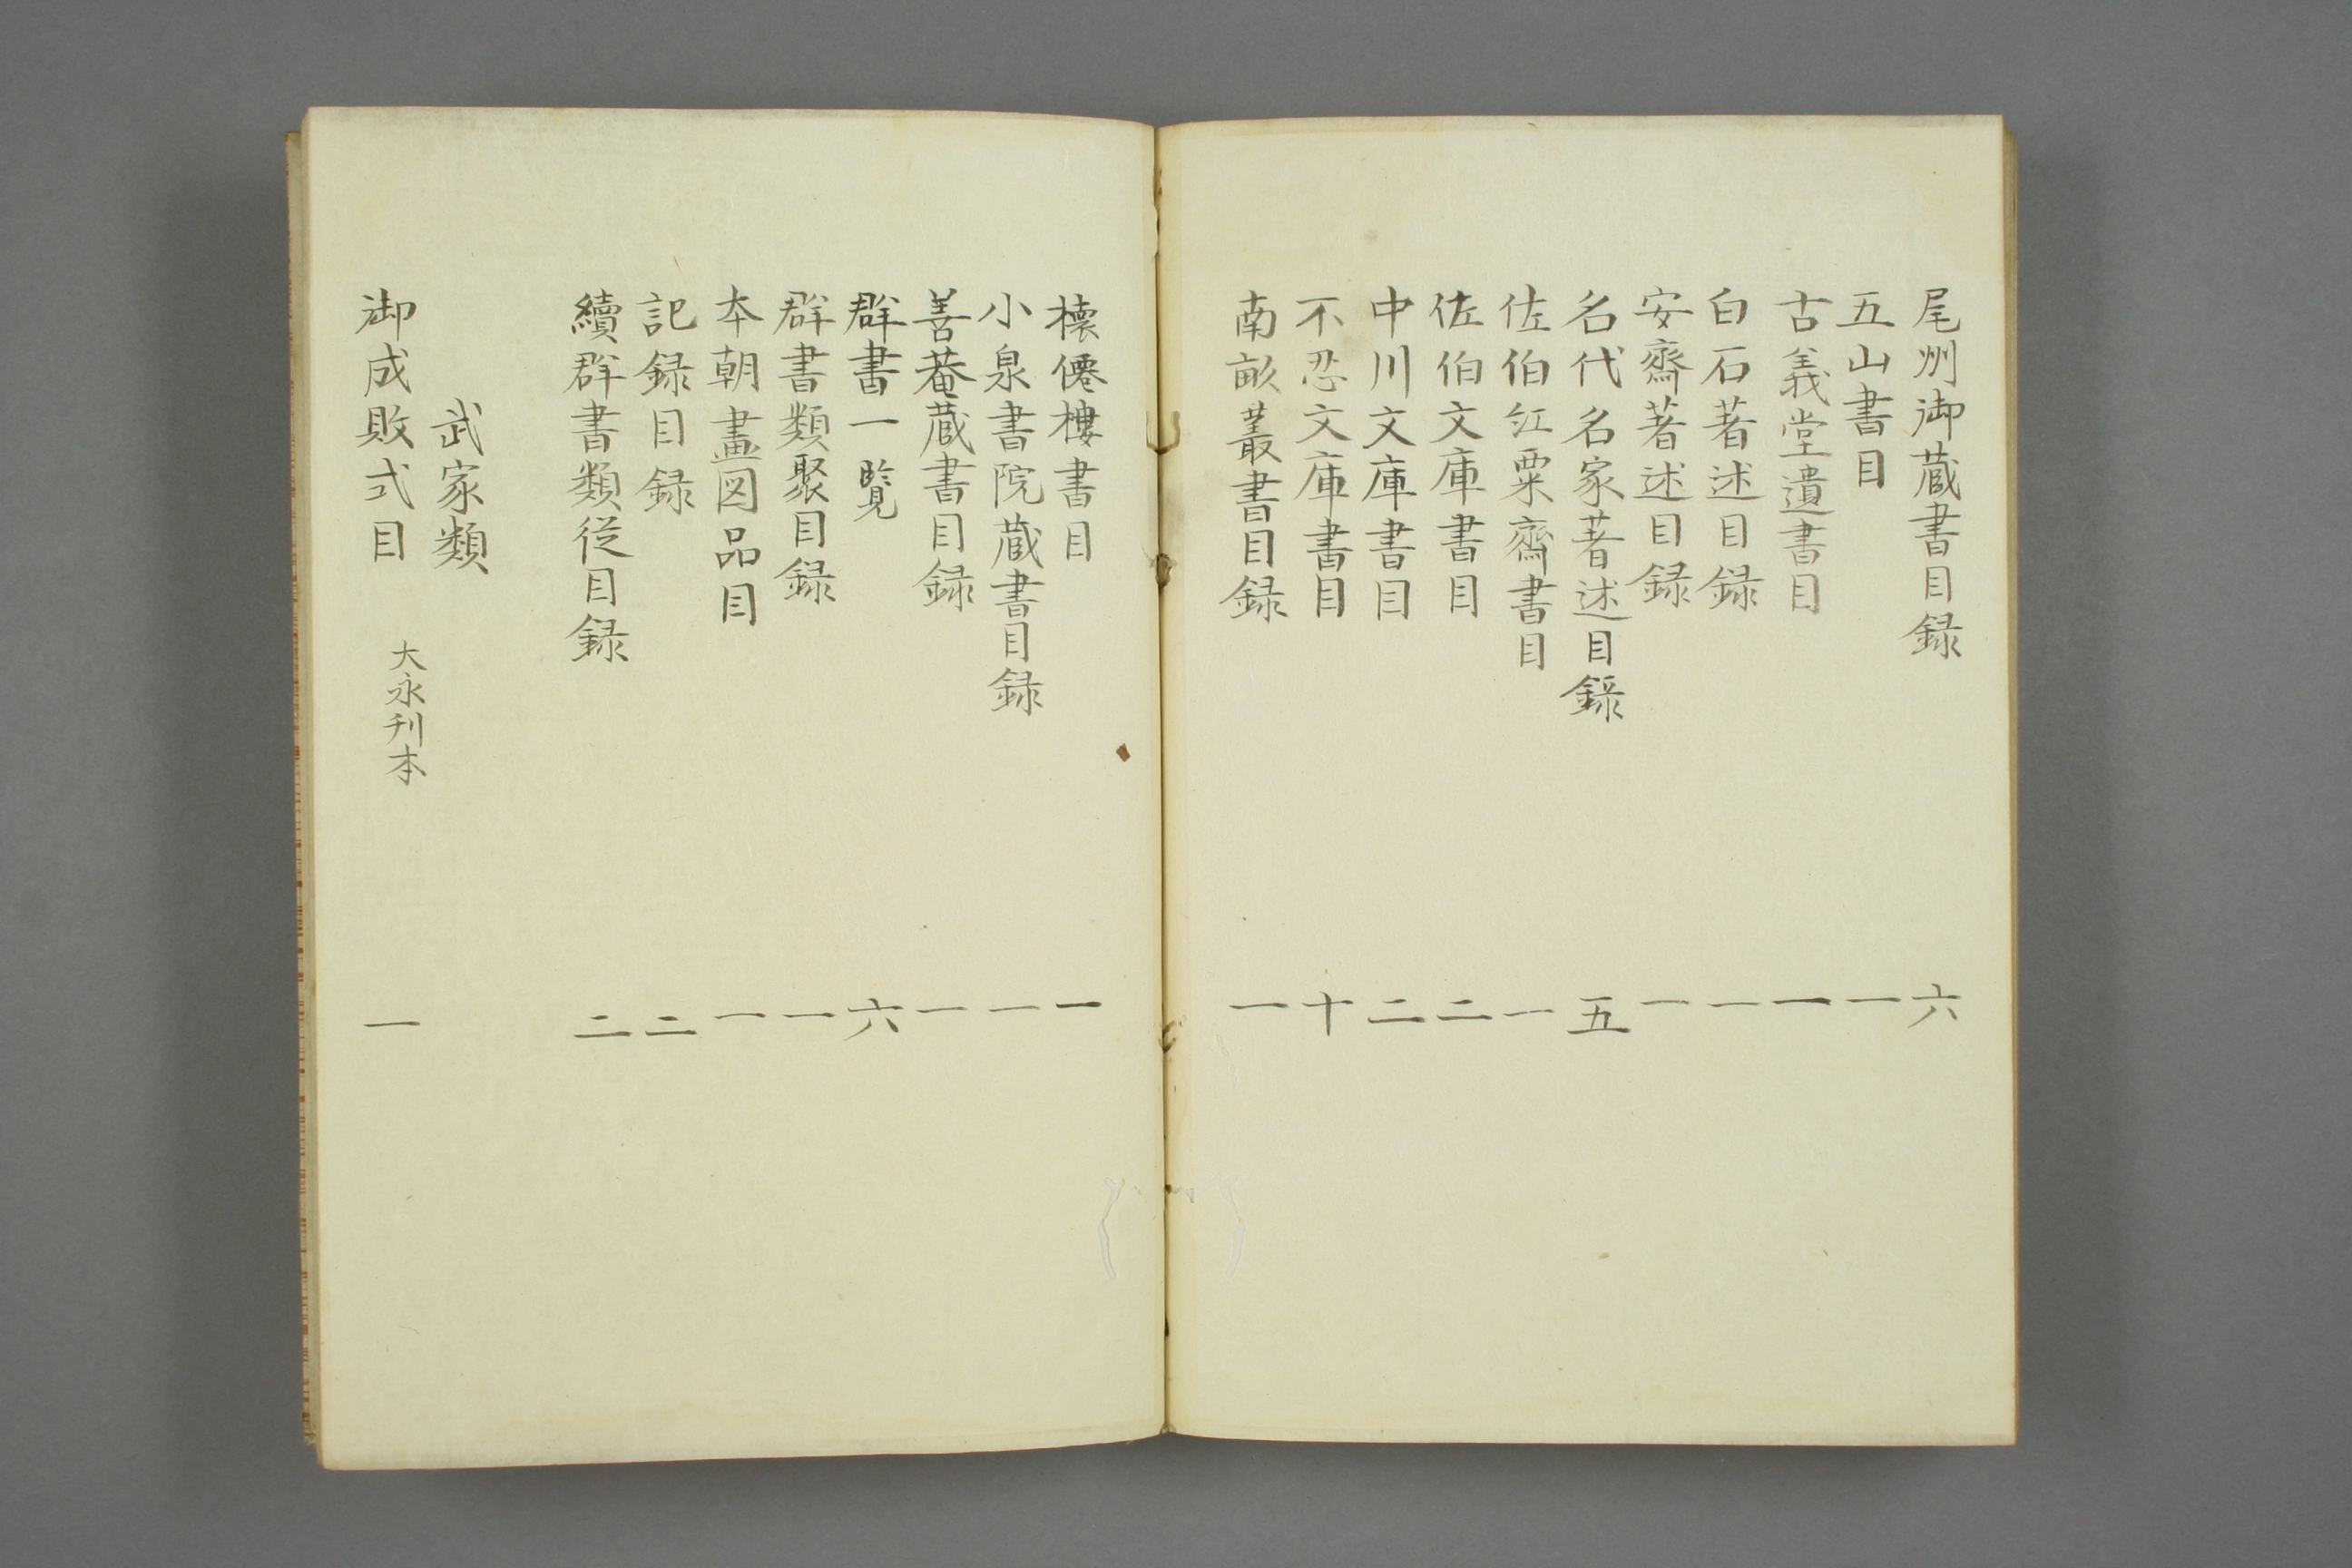 尾州御蔵書目録 六
五山書目 一
古義堂遺書目 一
白石著述目録 一
安齋著述目録 一
名代名家著述目録 五
佐伯紅粟齋書目 一
佐伯文庫書目 二
中川文庫書目 二
不忍文庫書目 十
南畝叢書目録 一
懐僊樓書目 一
小泉書院蔵書目録 一
善菴蔵書目録 一
群書一覧 六
群書類聚目録 一
本朝畫図品目 一
記録目録 二
續群書類従目録 二
武家類
御成敗式目 大永刊本 一